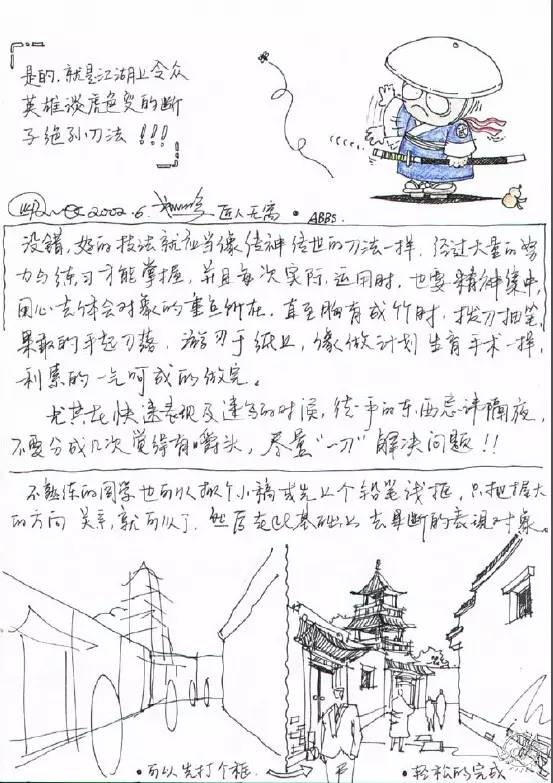 是的,就是江湖上令众
英雄谈虎色变的断
子绝孙刀法!!!
2002.6. 匠人无寓 · ABBS.
没错,好的技法就应当像传神传世的刀法一样,经过大量的努
力与练习才能掌握,并且每次实际运用时,也要精神集中,
用心去体会对象的重点所在,直至胸有成竹时,拔刀抽笔,
果敢的手起刀落,游刃于纸上,像做计划生育手术一样,
利索的一气呵成的做完。
尤其在快速表现及速写的时候,徒手的东西忌讳隔夜,
不要分成几次觉得有嚼头,尽量“一刀”解决问题!!
不熟练的同学也可以做个小稿或先上个铅笔线框,只把握大
的方向关系,就可以了,然后在此基础上去果断的表现对象。
·可以先打个框.
·轻松的完成